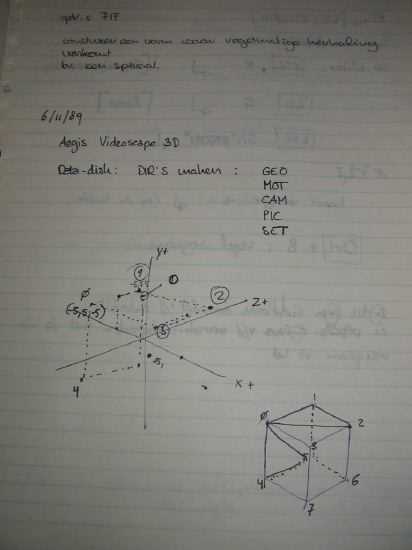 construeer een vorm waarin regelmatige herhaling
voorkomt
bv. een spiraal.
6/11/89
Aegis Videoscape 3D
Data-disk: DIR'S maken : GEO
MOT
CAM
PIC
SET
y+
1
0
2
z+
(-5,5,-5)
3
5,
4
x+
1
0
2
3
5
4
6
7